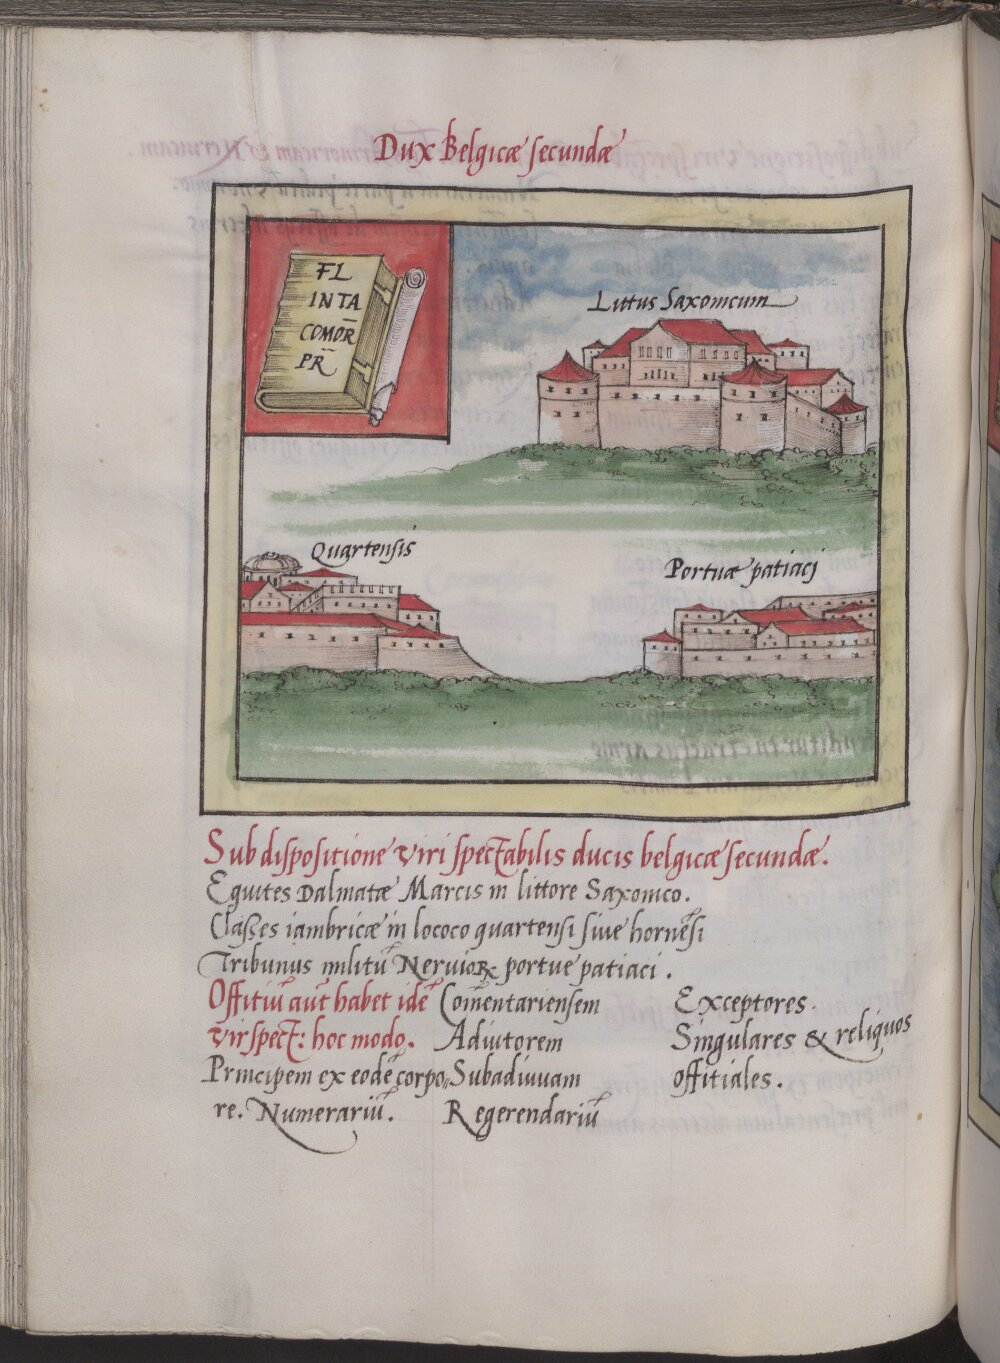 Dux Belgicæ secundæ
FL
INTA
COMOR̄
PR̄
Littus Saxonicum
Quartensis
Portuæ patiaci
Sub dispositione viri spectabilis ducis belgicæ secundæ.
Equites Dalmatæ Marcis in littore Saxonico.
Classes iambricæ in lococo quartensi sive hornēsi
Tribunus militū Nervioꝝ portue patiaci.
Offitiū aūt habet idē
vir spect: hoc modo.
Principem ex eodē corpo,
re. Numerariū.
Com̄entariensem
Adiutorem
Subadiuuam
Regerendariū
Exceptores.
Singulares & reliquos
offitiales.